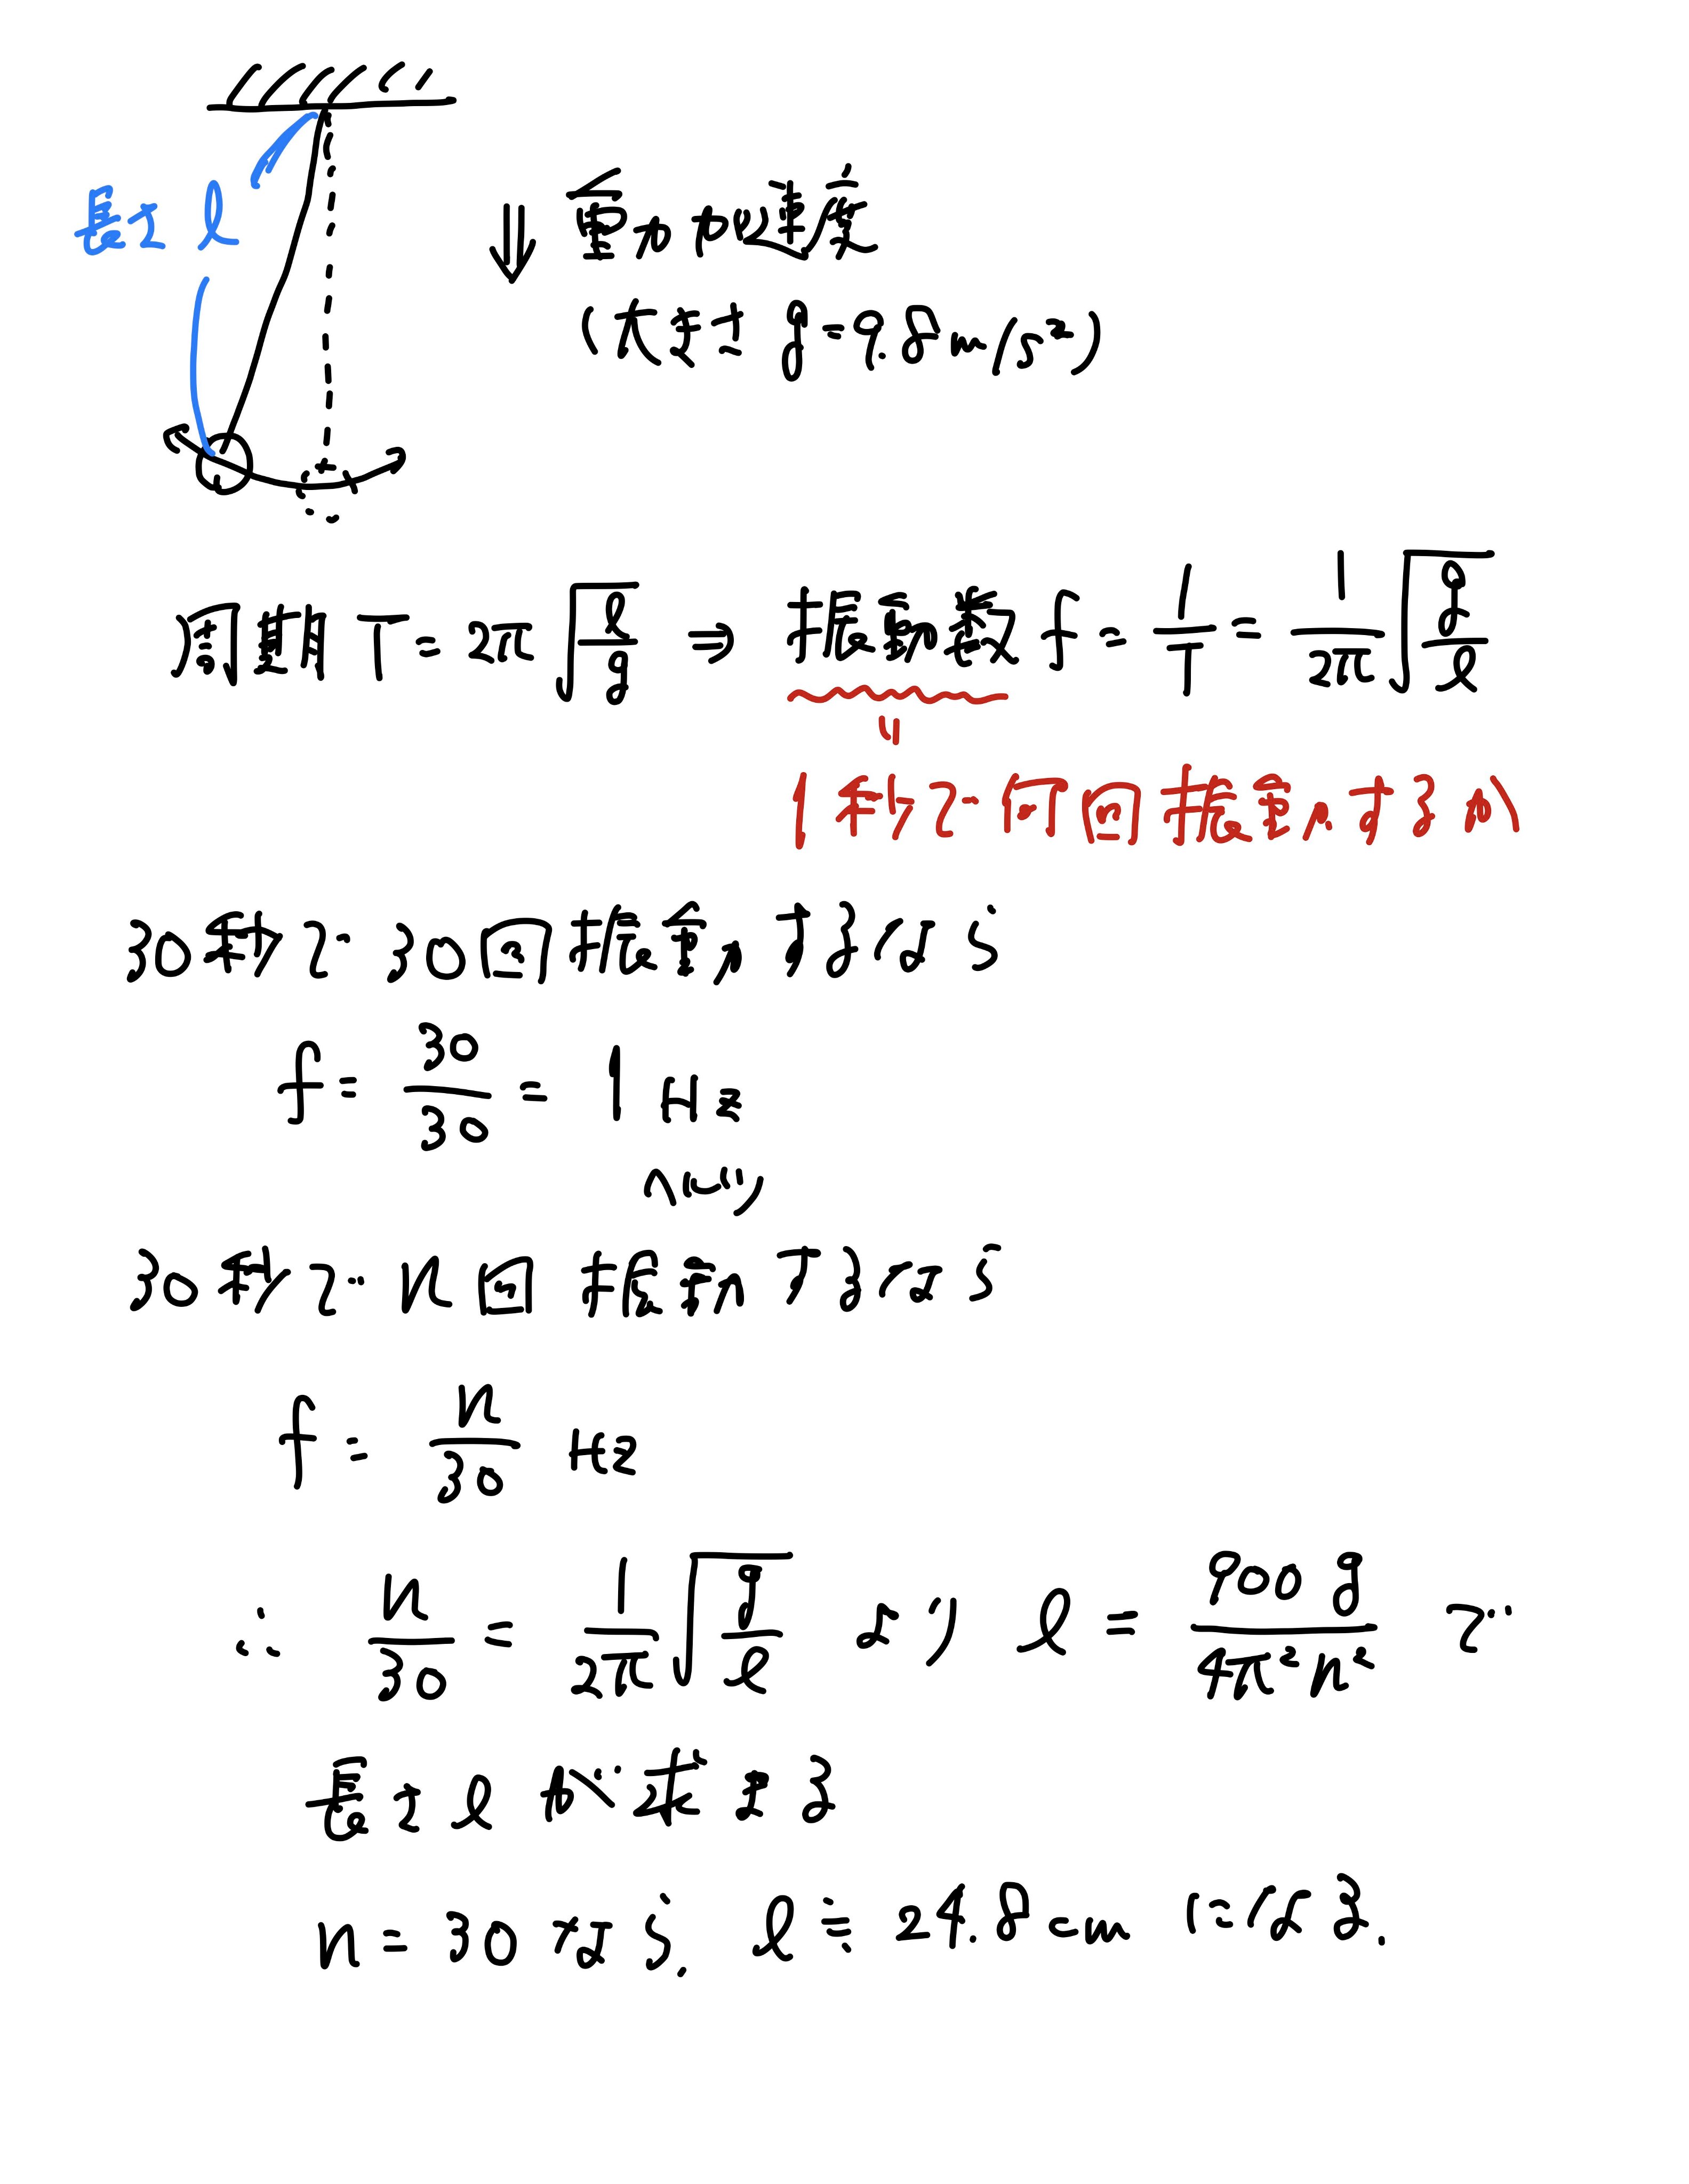 長さ l
重力加速度
(大きさ g=9.8m/s²)
周期 T = 2π√(l/g) ⇒ 振動数 f = 1/T = 1/2π √(g/l)
〃
1秒で何回振動するか
30秒で 30回振動するなら
f = 30/30 = 1 Hz
ヘルツ
30秒で n回 振動するなら
f = n/30 Hz
∴ n/30 = 1/2π √(g/l) より l = 900g/4π²n² で
長さ l が求まる
n = 30 なら. l ≒ 24.8cm になる.